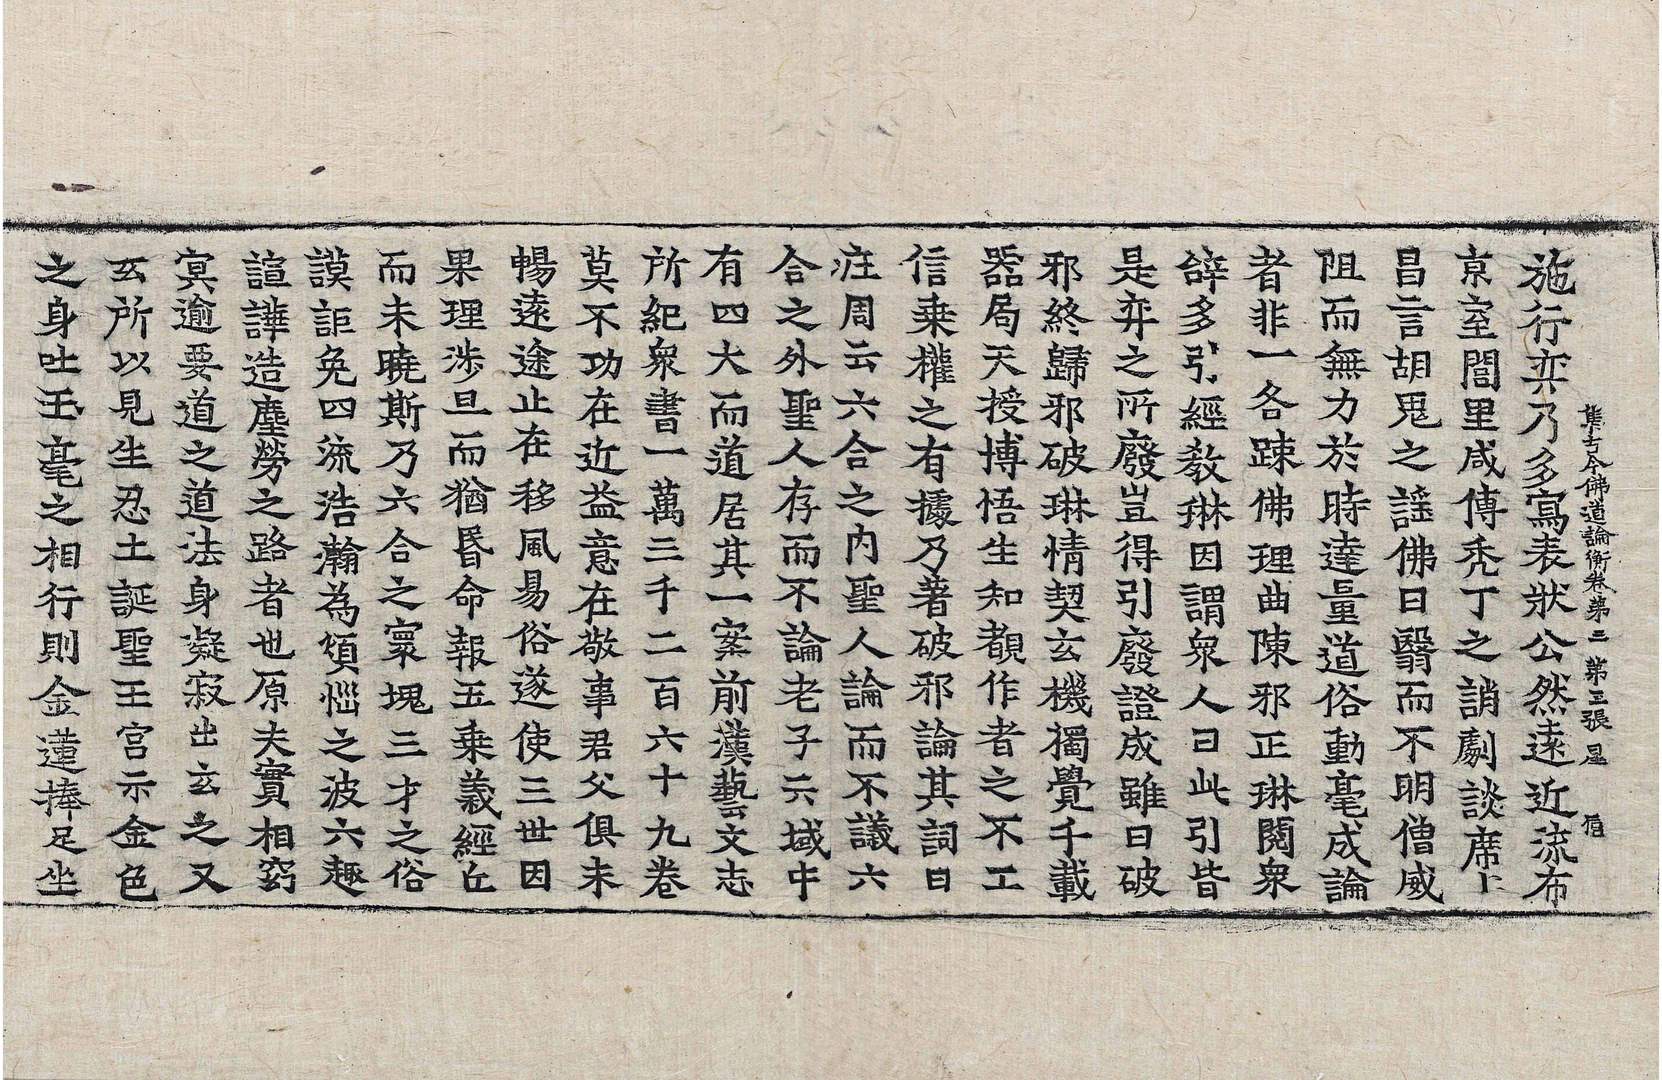 集古今佛道論衡卷第三 第三張 星
施行弈乃多寫表狀公然遠近流布
京室閭里咸傳禿丁之誚劇談席上
昌言胡鬼之謡佛日翳而不明僧威
阻而無力於時達量道俗動毫成論
者非一各踈佛理曲陳邪正琳閱衆
辝多引經教琳因謂衆人曰此引皆
是弈之所廢豈得引廢證成雖曰破
邪終歸邪破琳情契玄機獨覺千載
器局天授博悟生知覩作者之不工
信乗權之有據乃著破邪論其詞曰
莊周云六合之內聖人論而不議六
合之外聖人存而不論老子云域中
有四大而道居其一案前漢藝文志
所紀衆書一萬三千二百六十九卷
莫不功在近益意在敬事君父俱未
暢遠途止在移風易俗遂使三世因
果理涉旦而猶昬命報五乗義經丘
而未曉斯乃六合之寰塊三才之俗
謨詎免四流浩瀚為煩惱之波六趣
諠譁造塵勞之路者也原夫實相窈
冥逾要道之道法身凝寂出玄之又
玄所以見生忍土誕聖王宮示金色
之身吐玉毫之相行則金蓮捧足坐